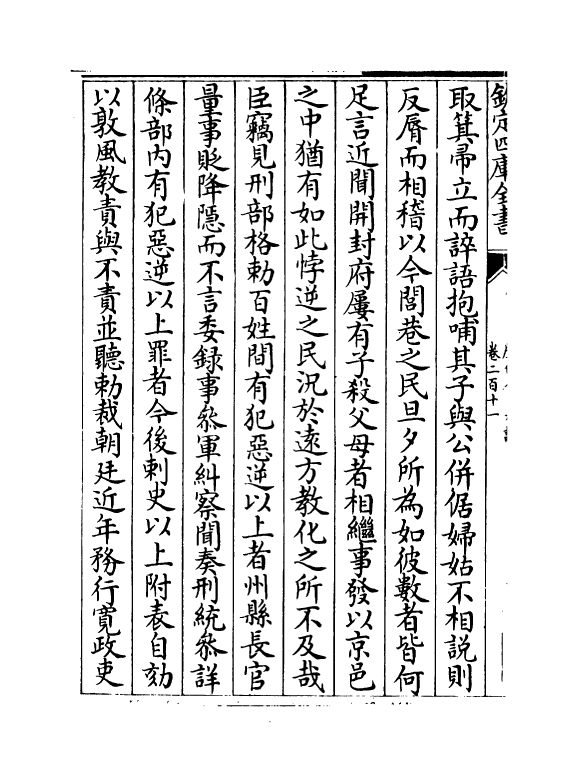 欽定四庫全書
卷二百十一
取箕帚立而誶語抱哺其子與公併倨婦姑不相說則
反脣而相稽以今閭巷之民旦夕所為如彼數者皆何
足言近聞開封府屢有子殺父母者相繼事發以京邑
之中猶有如此悖逆之民況於遠方教化之所不及哉
臣竊見刑部格勅百姓間有犯惡逆以上者州縣長官
量事貶降隱而不言委録事叅軍糾察聞奏刑統叅詳
條部内有犯惡逆以上罪者今後刺史以上附表自劾
以敦風教責與不責並聽勅裁朝廷近年務行寛政吏